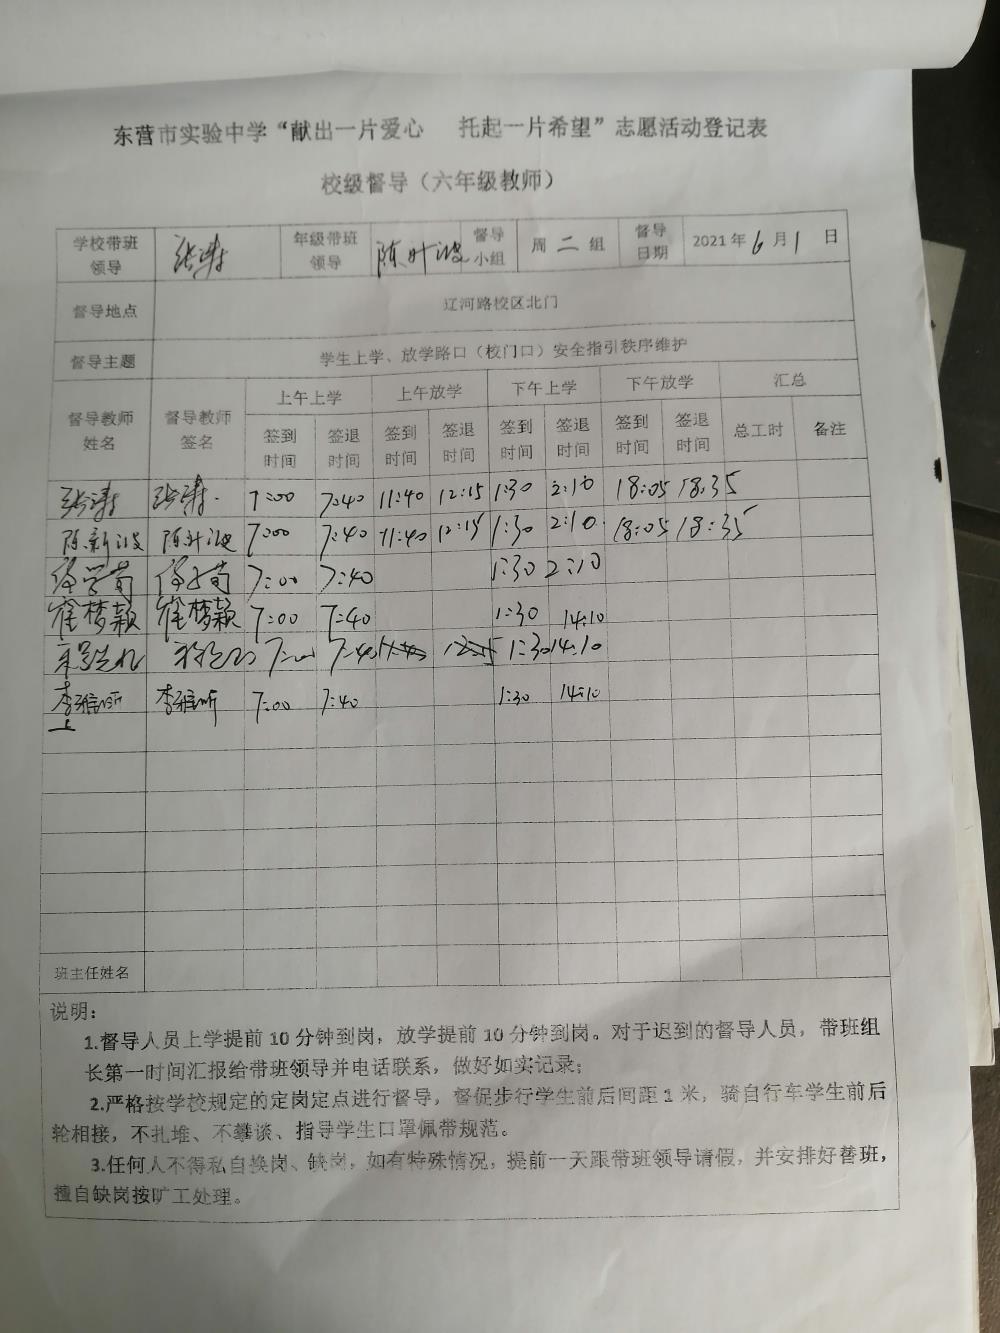 东营市实验中学“献出一片爱心 托起一片希望”志愿活动登记表
校级督导（六年级教师）
学校带班领导 张涛 年级带班领导 陈新波 督导小组 周二组 督导日期 2021年6月1日
督导地点 辽河路校区北门
督导主题 学生上学、放学路口（校门口）安全指引秩序维护
督导教师姓名 督导教师签名 上午上学 上午放学 下午上学 下午放学 汇总
签到时间 签退时间 签到时间 签退时间 签到时间 签退时间 签到时间 签退时间 总工时 备注
张涛 张涛 7:00 7:40 11:40 12:15 1:30 2:10 18:05 18:35
陈新波 陈新波 7:00 7:40 11:40 12:15 1:30 2:10 18:05 18:35
7:00 7:40 1:30 2:10
崔梦颖 崔梦颖 7:00 7:40 1:30 14:10
7:00 7:40 1:30 14:10
李雅昕 李雅昕 7:00 7:40 1:30 14:10
上
班主任姓名
说明：
1.督导人员上学提前10分钟到岗，放学提前10分钟到岗。对于迟到的督导人员，带班组
长第一时间汇报给带班领导并电话联系，做好如实记录；
2.严格按学校规定的定岗定点进行督导，督促步行学生前后间距1米，骑自行车学生前后
轮相接，不扎堆、不攀谈、指导学生口罩佩带规范。
3.任何人不得私自换岗、缺岗，如有特殊情况，提前一天跟带班领导请假，并安排好替班，
擅自缺岗按旷工处理。